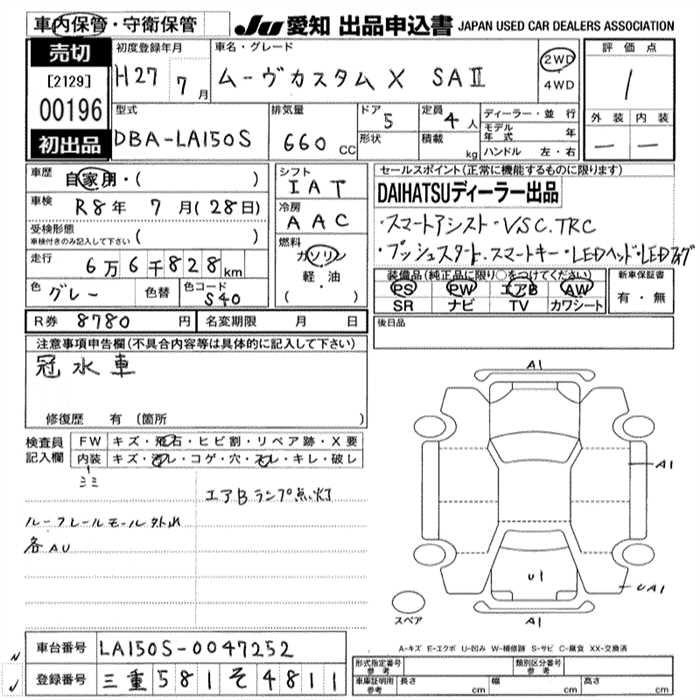 車内保管・守衛保管
JU 愛知 出品申込書 JAPAN USED CAR DEALERS ASSOCIATION
売切
[2129]
00196
初出品
初度登録年月
H27 7月
車名・グレード
ムーヴカスタム X SAⅡ
2WD
4WD
評価点
1
外装 内装
— —
型式
DBA-LA150S
排気量
660 CC
ドア
5
形状
定員
4人
積載
kg
ディーラー・並行
モデル年式 年
ハンドル 左・右
車歴
自家用・( )
車検
R8年 7月(28日)
受検形態
車検付きのみ記入して下さい ( )
走行
6万6千828km
色
グレー
色替
色コード
S40
シフト
IAT
冷房
AAC
燃料
ガソリン
軽油
( ・ )
セールスポイント(正常に機能するものに限ります)
DAIHATSUディーラー出品
・スマートアシスト・VSC.TRC
・プッシュスタート.スマートキー・LEDヘッド・LEDフォグ
装備品(純正品に限り○をつけてください)
PS PW エアB AW
SR ナビ TV カワシート
新車保証書
有・無
R券 8780円
名変期限 月 日
後日品
注意事項申告欄(不具合内容等は具体的に記入して下さい)
冠水車
修復歴 有 (箇所
検査員記入欄
FW キズ・飛石・ヒビ割・リペア跡・X要
内装 キズ・汚レ・コゲ・穴・スレ・キレ・破レ
エアBランプ点灯
ルーフレールモール外れ
各AU
A1
A1
U1
UA1
A1
スペア
A-キズ E-エクボ U-凹み W-補修跡 S-サビ C-腐食 XX-交換済
車台番号 LA150S-0047252
登録番号 三重581そ4811
形式指定番号 参考
類別区分番号 参考
車庫証明用 参考 長さ cm 幅 cm 高さ cm